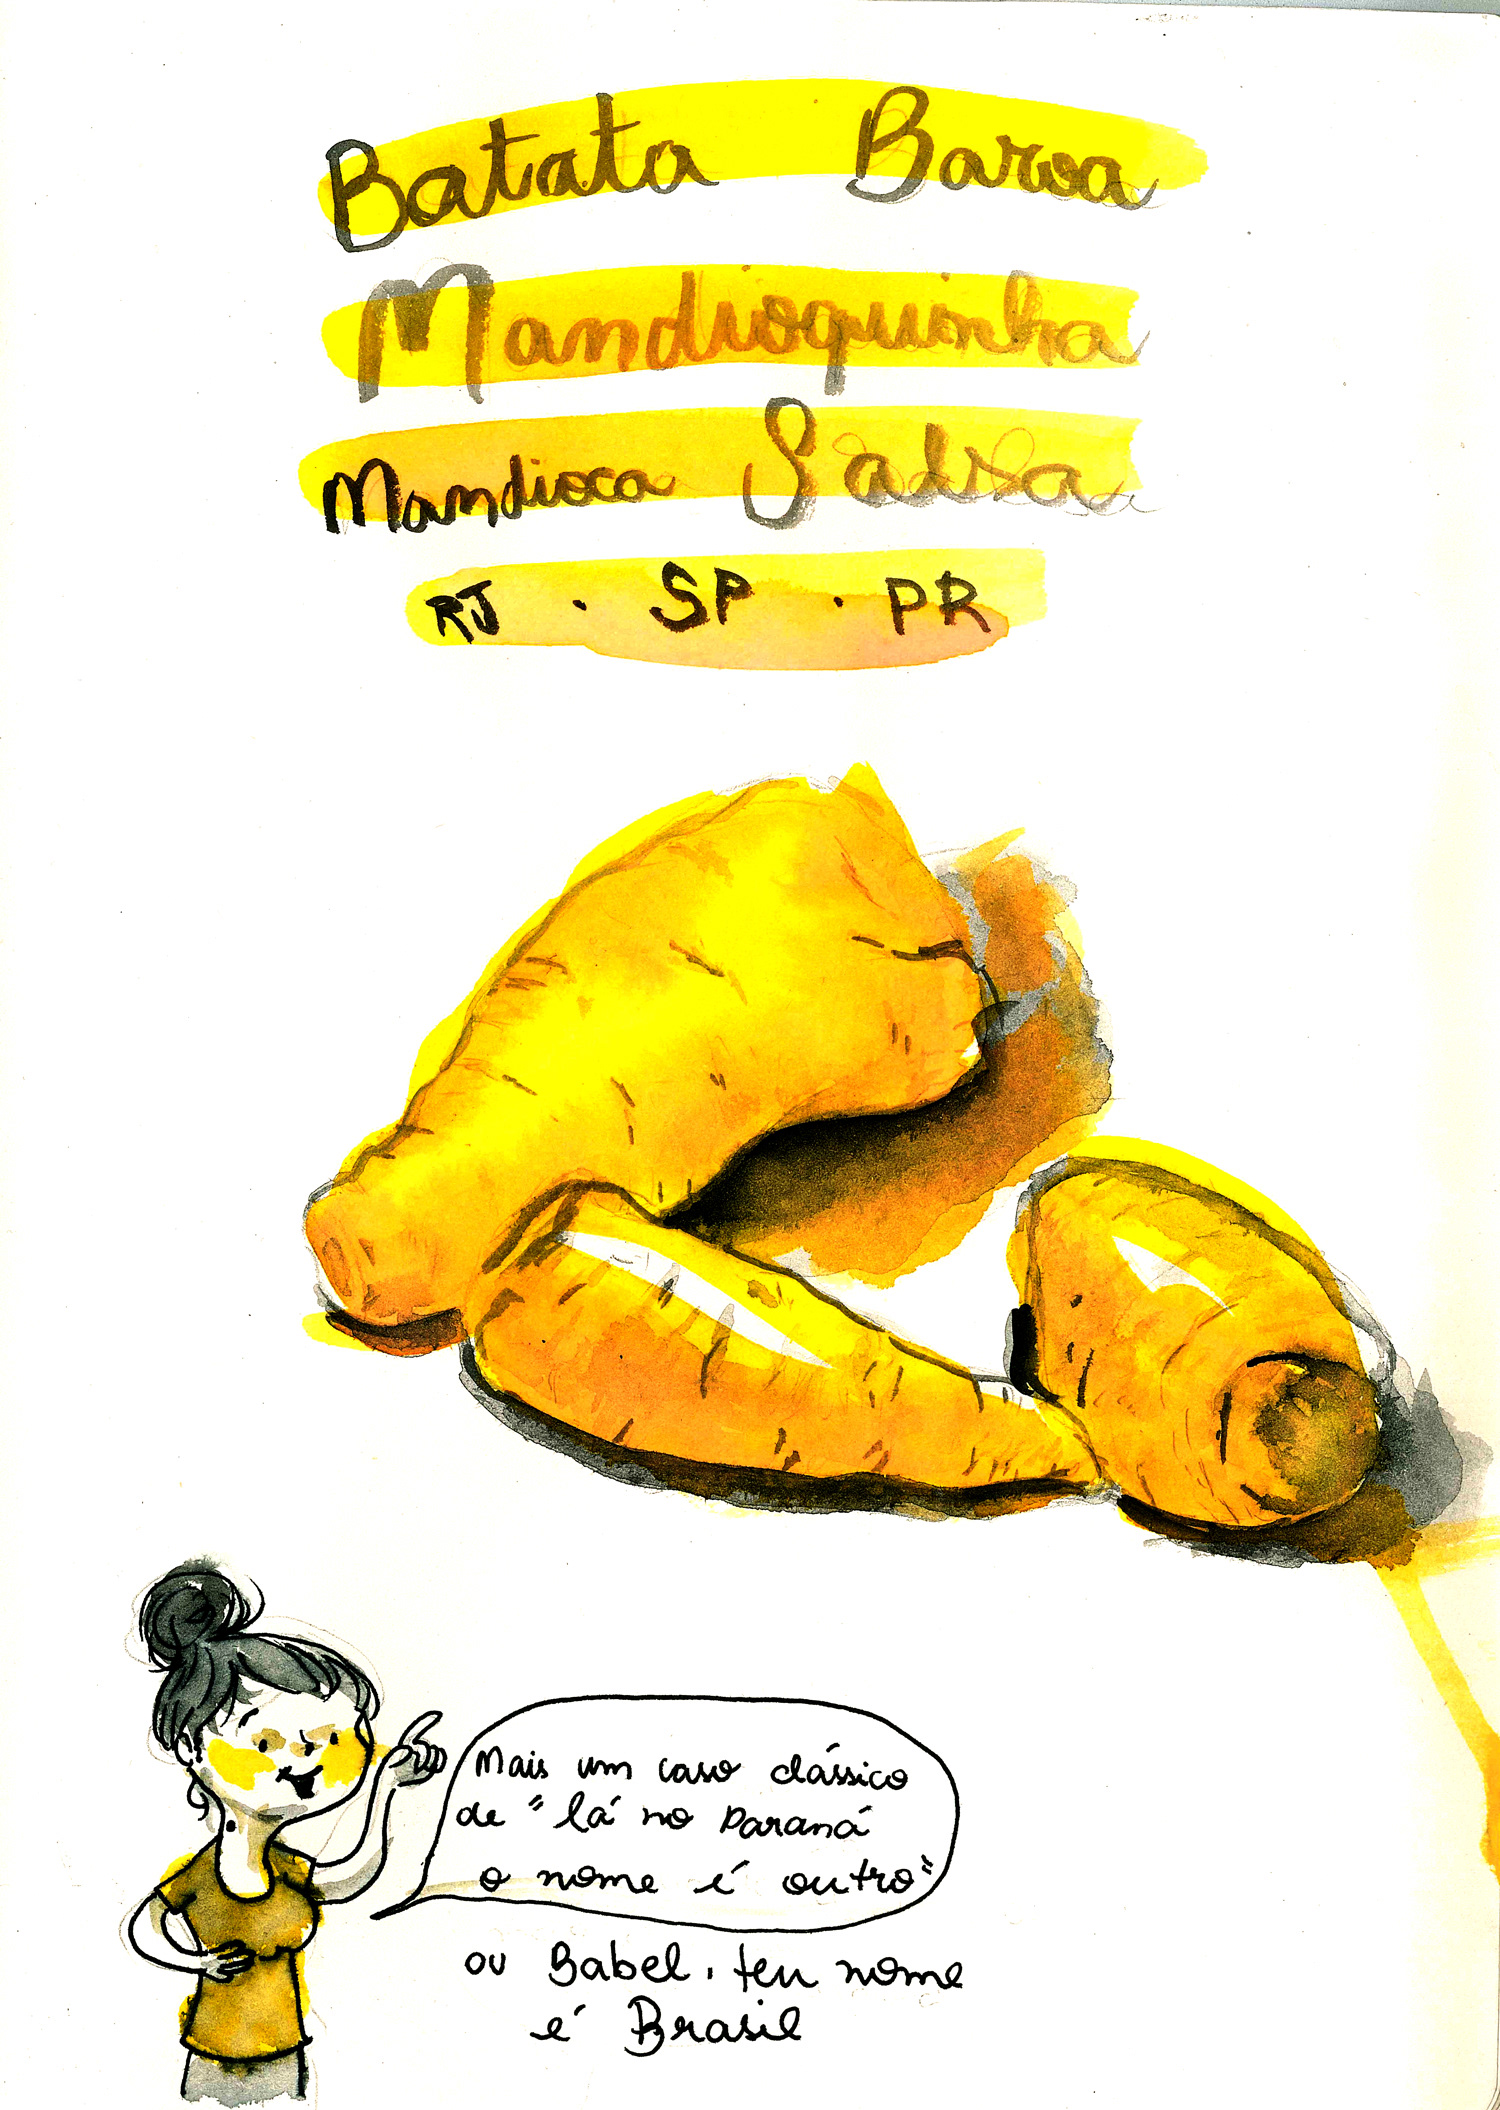 Batata Baroa
Mandioquinha
Mandioca Salsa
RJ . SP . PR
Mais um caso clássico
de "lá no Paraná
o nome é outro"
ou Babel, teu nome
é Brasil